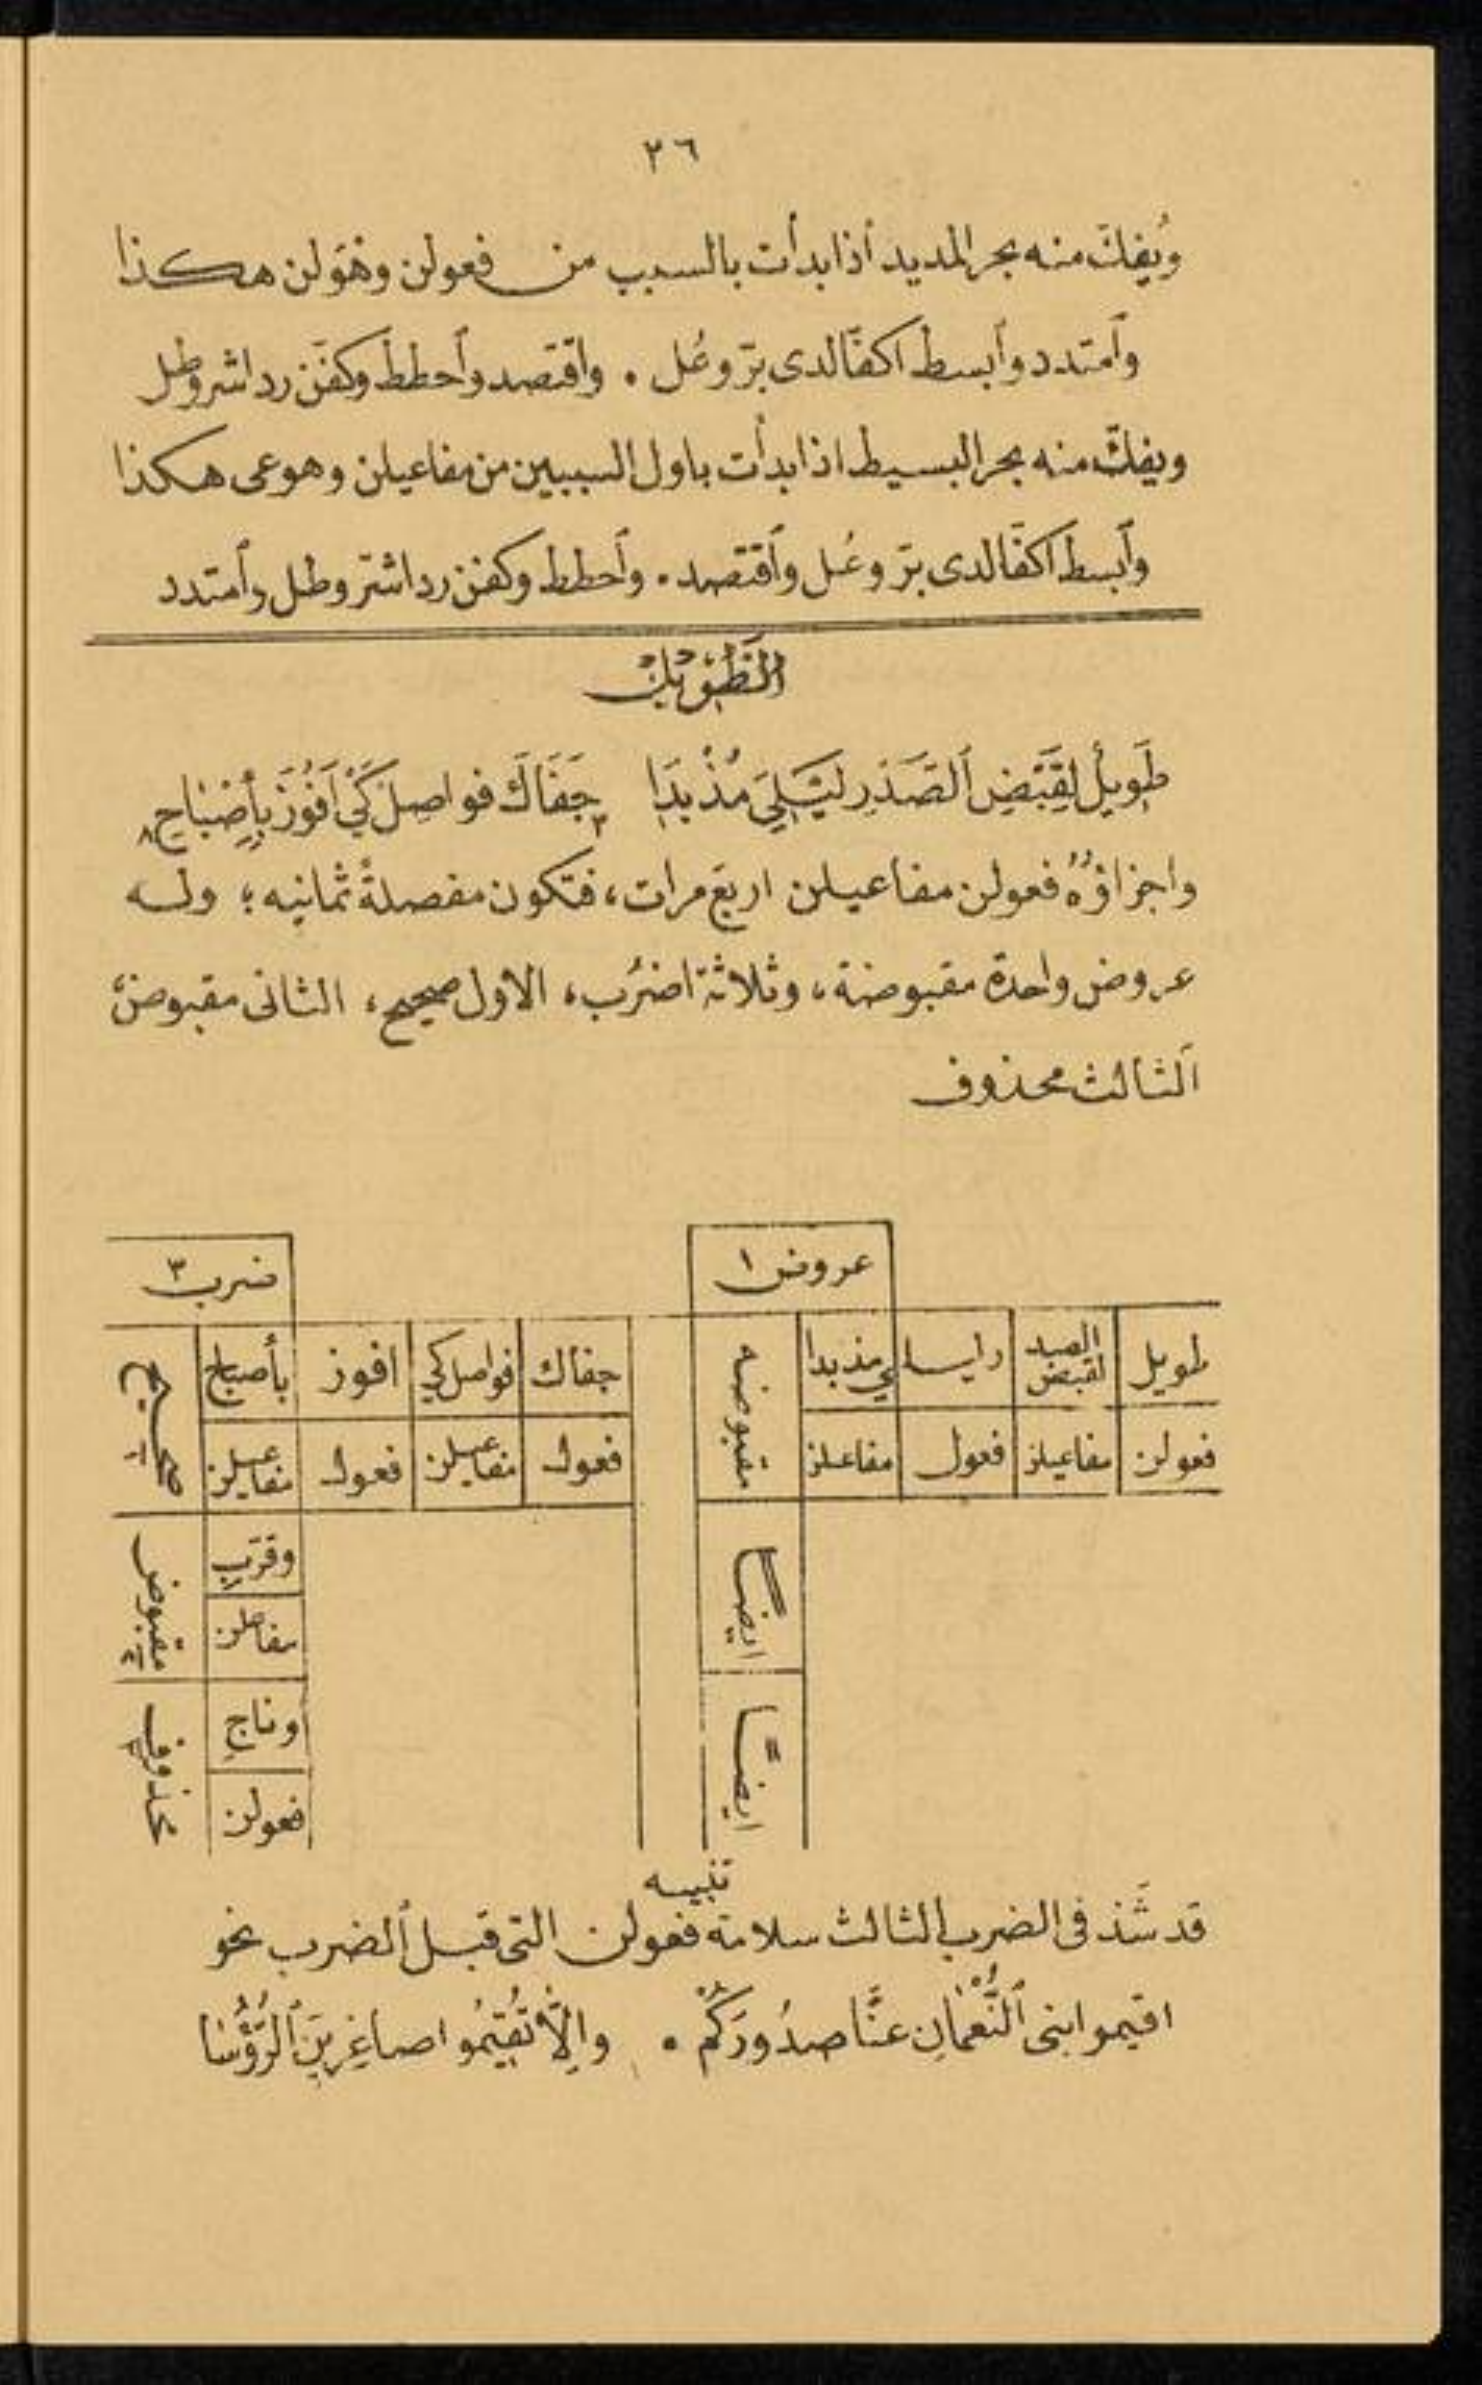 ٢٦
ويُفكّ منه بحر المديد اذا بدأت بالسبب من فعولن وهَوَلن هكذا
وٱمتدد وٱبسط اكفّا لدى برّ وعُل . واقتصد وٱحطط وكفّن رد اشر وطل
ويفكّ منه بحر البسيط اذا بدأت باول السببين من مفاعيلن وهو عى هكذا
وٱبسط اكفّا لدى برّ وعُل وٱقتصد . وٱحطط وكفن رد اشتر وطل وٱمتدد
الطَّوِيْل
طَوِيلٌ لِقَبْضِ ٱلصَّدْرِ لَيْسَلِي مُذْ بَدَا جَفَاكَ فواصِلْ كَيْ اَفُوزَ بِأَصْبَاحِ
واجزاؤُهُ فعولن مفاعيلن اربعَ مرات، فتكون مفصلةً ثمانيه؛ وله
عروض واحدة مقبوضة، وثلاثة اضرُب، الاول صحيح، الثانى مقبوض،
الثالث محذوف
عروض ١ ضرب ٣
طويل لقبض الصد رليسا لي مذ بدا مقبوضه جفاك فواصل كي افوز بأصباح صحيح
فعولن مفاعيلن فعول مفاعلن فعول مفاعيلن فعول مفاعيلن
ايضًا وقرّب مقبوض
مفاعلن
ايضًا وناجِ محذوف
فعولن
تنبيه
قد شَذ فى الضرب الثالث سلامة فعولن التى قبل ٱلضرب نحو
اقيموا ابنى ٱلنُّعْمَانِ عنَّا صدُورَكُمْ . والِّا تُقِيمُوا صاغِرِينَ ٱلرُّؤُسَا